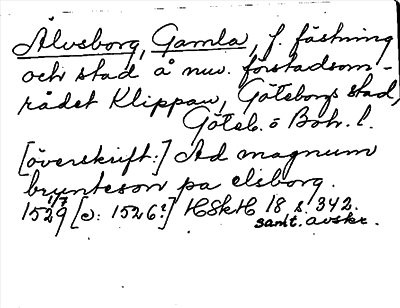 Älvsborg, Gamla, f. fästning
och stad å nuv. förstadsom-
rådet Klippan, Göteborgs stad,
Göteb. o Boh. l.
[överskrift:] Ad magnum
brynteson pa elsborg.
1529 1/7 [c: 1526?] HSkH 18 s. 342.
samt. avskr.